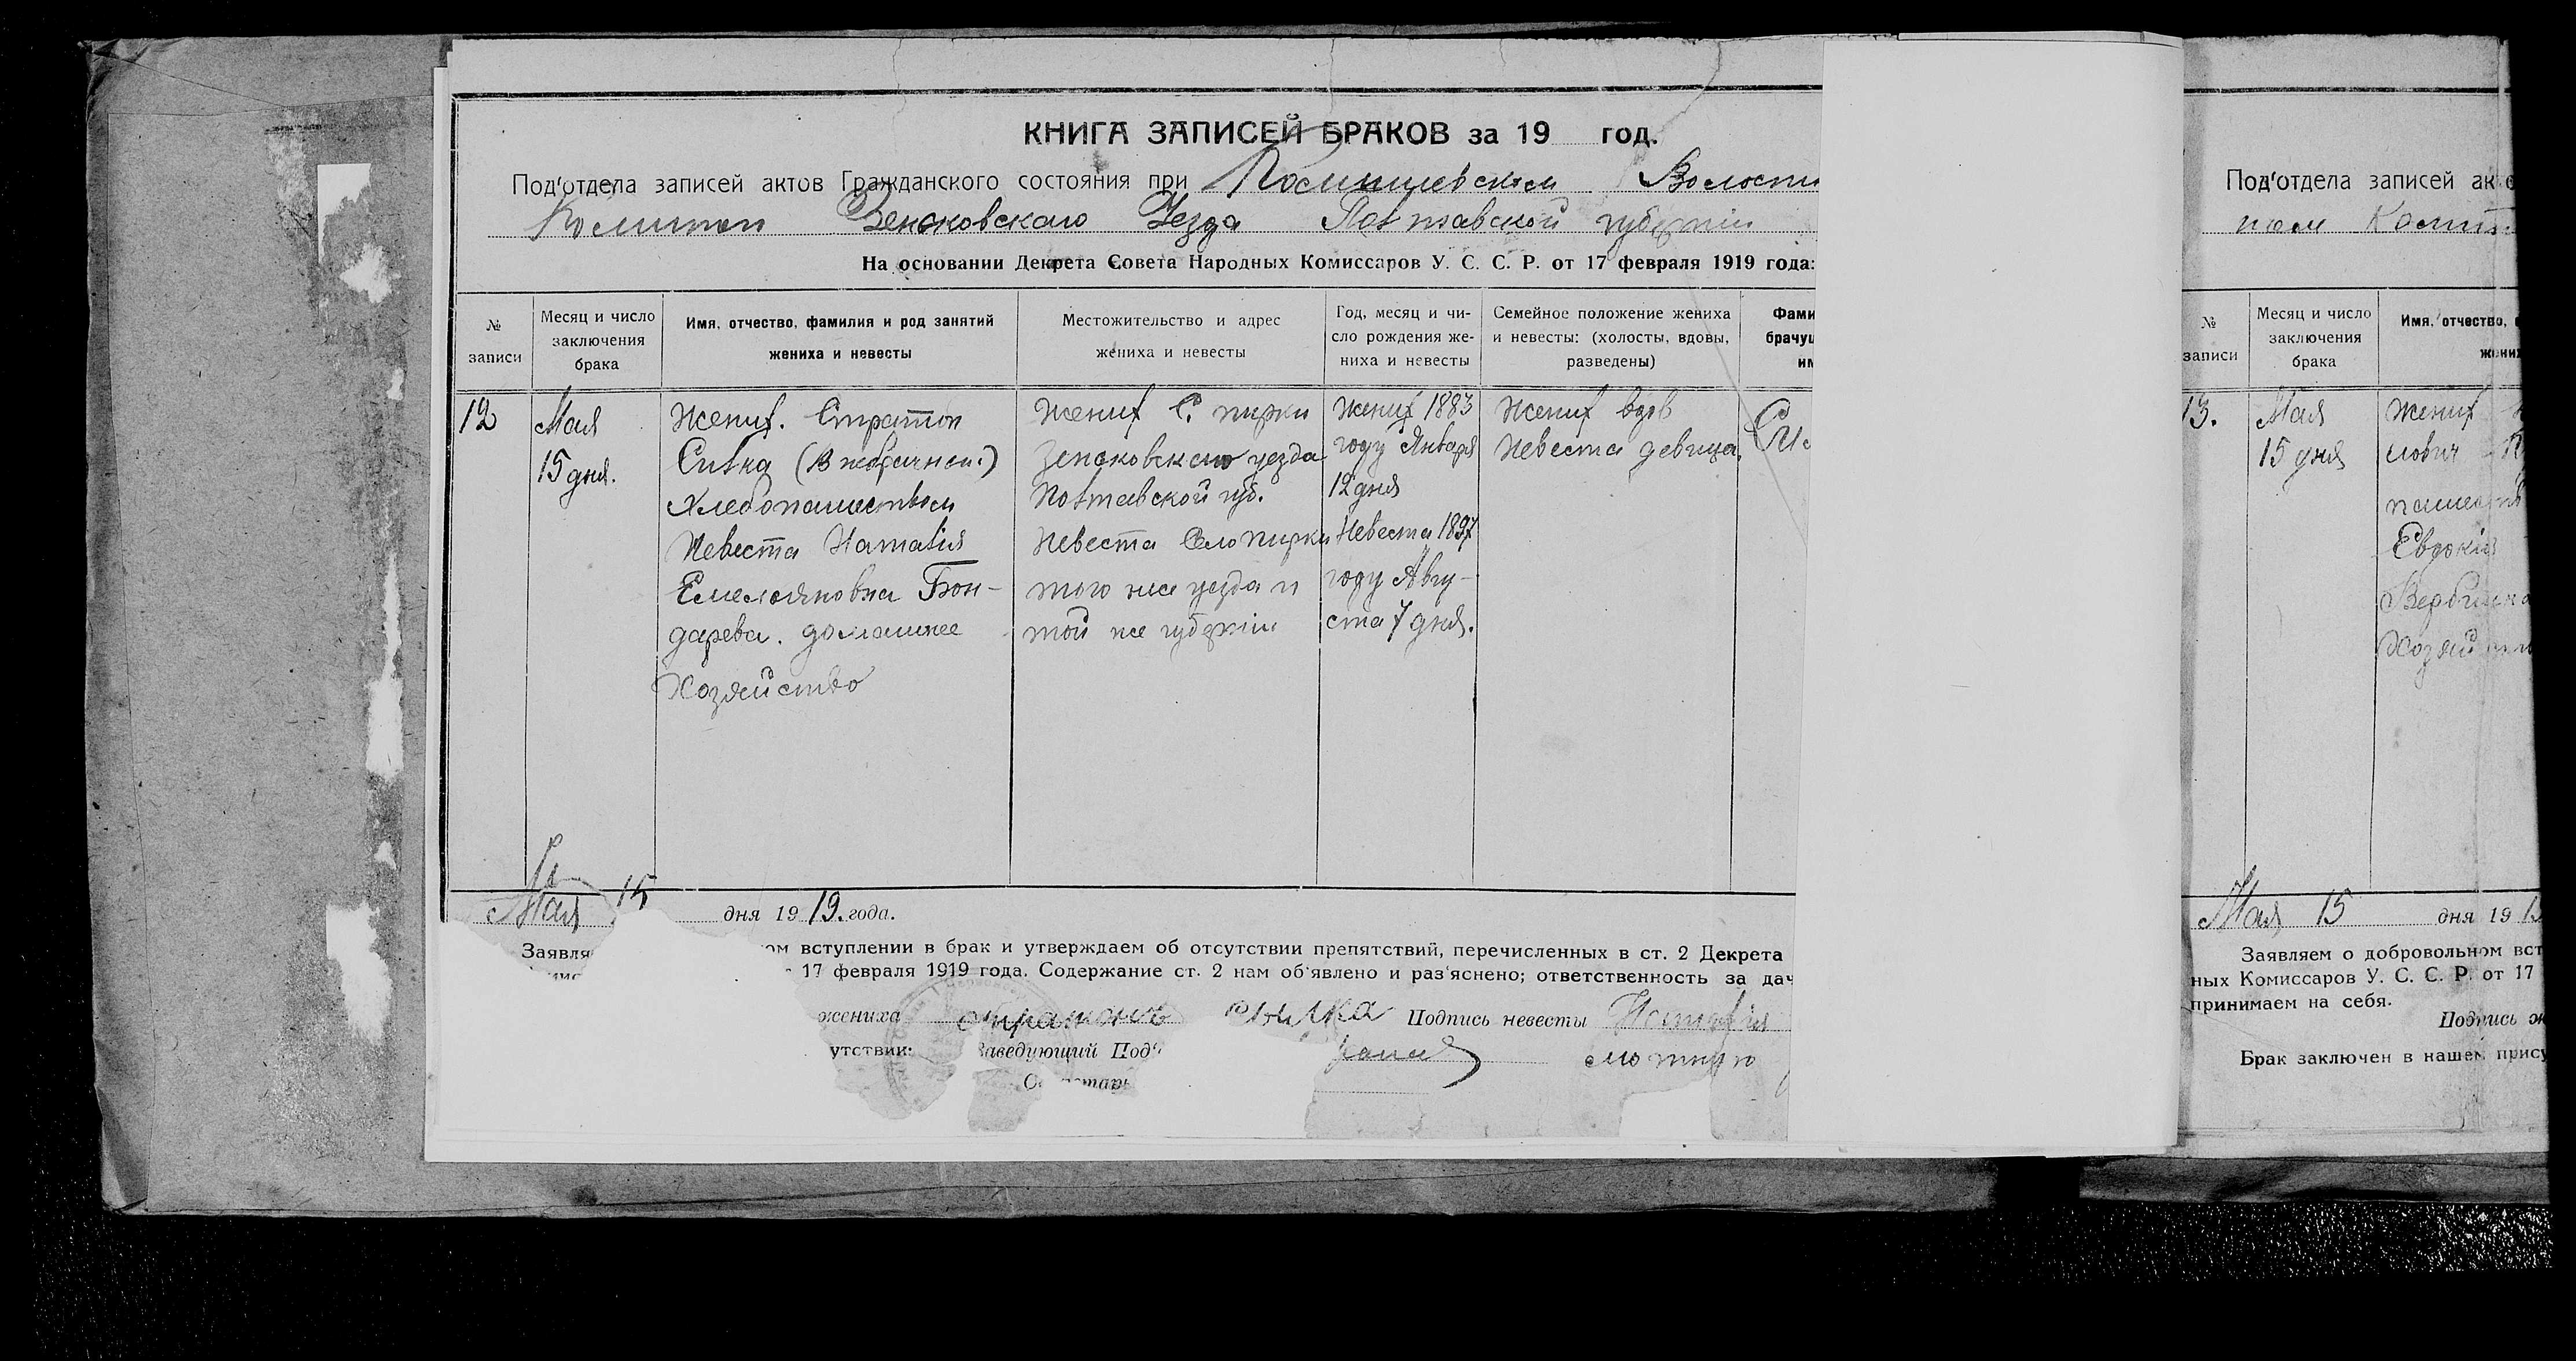 КНИГА ЗАПИСЕЙ БРАКОВ за 19 год.
Под'отдела записей актов Гражданского состояния при Волости
Комитет Зеньковского Уезда Полтавской губернии
На основании Декрета Совета Народных Комиссаров У. С. С. Р. от 17 февраля 1919 года:
№ записи
Месяц и число заключения брака
Имя, отчество, фамилия и род занятий жениха и невесты
Местожительство и адрес жениха и невесты
Год, месяц и число рождения жениха и невесты
Семейное положение жениха и невесты: (холосты, вдовы, разведены)
Фами
брачу
им
12
Мая
15 дня.
Жених. Стратон
Ситка
Хлебопашеством
Невеста Наталія
Емельяновна Бон-
дарева. домашнее
Хозяйство
Жених С. пирки
Зеньковского уезда
Полтавской губ.
Невеста Село Пирки
того же уезда и
той же губернии
Жених 1883
году Января
12 дня
Невеста 1897
году Авгу-
ста 7 дня.
Жених вдов
Невеста девица.
Мая 15 дня 1919. года.
Заявля ом вступлении в брак и утверждаем об отсутствии препятствий, перечисленных в ст. 2 Декрета
17 февраля 1919 года. Содержание ст. 2 нам об'явлено и раз'яснено; ответственность за дач
жениха Подпись невесты Наталія
утствии: Заведующий Под'
Под'отдела записей ак
№ записи
Месяц и число заключения брака
Имя, отчество,
жених
13.
Мая
15 дня
Жених
лович
Евдокія
Мая 15 дня 19
Заявляем о добровольном вст
ных Комиссаров У. С. С. Р. от 17
принимаем на себя.
Подпись ж
Брак заключен в нашем прису